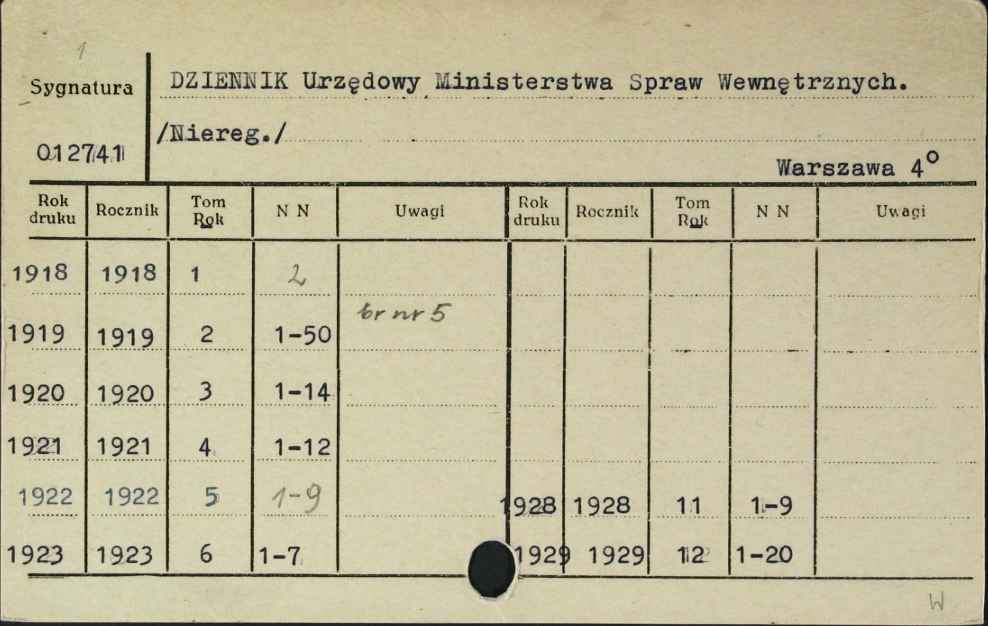 1
Sygnatura
DZIENNIK Urzędowy Ministerstwa Spraw Wewnętrznych.
/Niereg./
012741
Warszawa 4°
Rok druku Rocznik Tom Rok N N Uwagi Rok druku Rocznik Tom Rok N N Uwagi
1918 1918 1 2
br nr 5
1919 1919 2 1-50
1920 1920 3 1-14
1921 1921 4 1-12
1922 1922 5 1-9 1928 1928 11 1-9
1923 1923 6 1-7 1929 1929 12 1-20
W